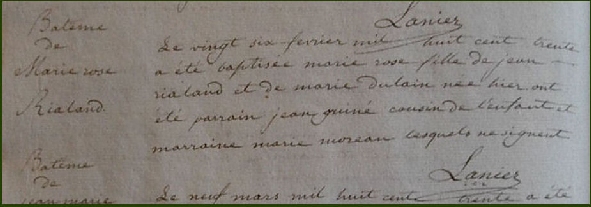 Lanier
Batême
de
Marie rose
Rialand.
Le vingt six fevrier mil huit cent trente
a été baptisée marie rose fille de jean
rialand et de marie dulain née hier ont
été parrain jean cousin de l'enfant et
marraine marie moreau lesquels ne signent
Lanier
Batême
de
jean marie
Le neuf mars mil huit cent trente a été